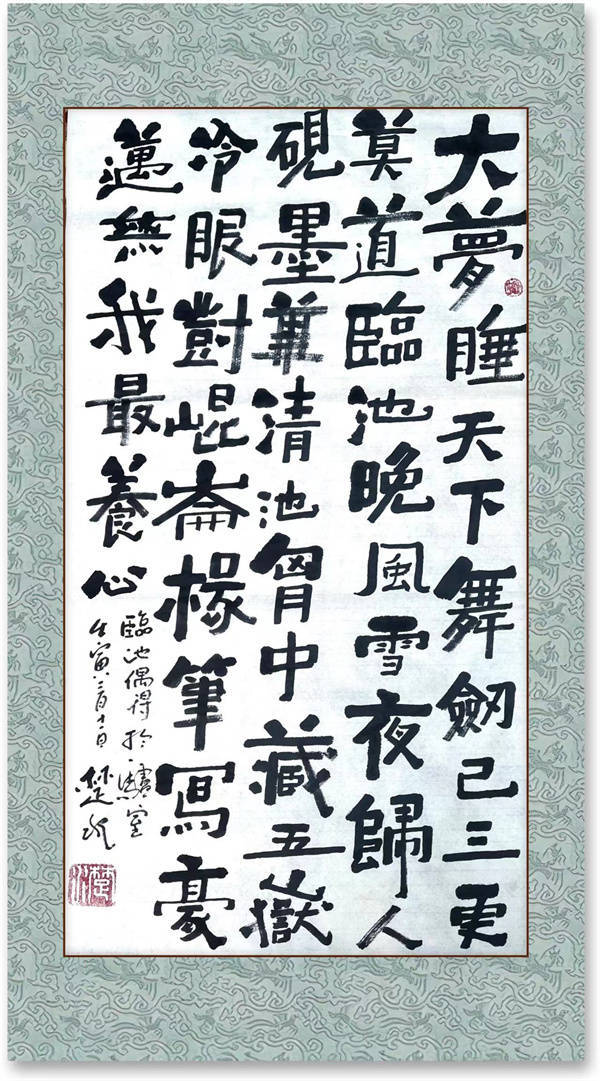 大夢睡天下舞劒已三更
莫道臨池晚風雪夜歸人
硯墨兼清池胷中藏五嶽
冷眼對崐崙椽筆寫豪
邁無我最養心
臨池偶得於室
壬寅月十一日楚水